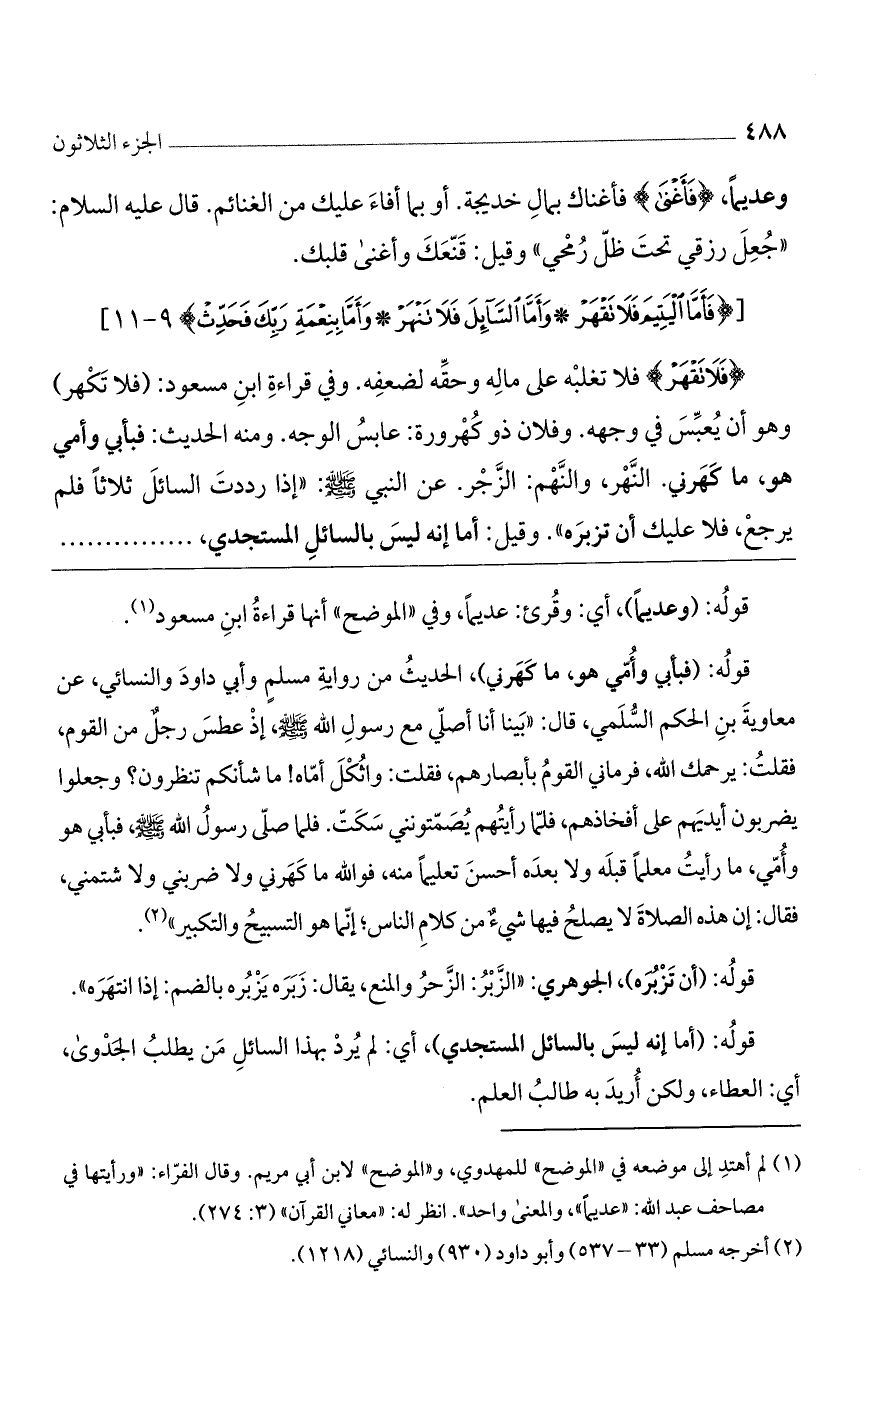 ٤٨٨ الجزء الثلاثون
وعديماً، ﴿فَأَغْنَى﴾ فأغناك بمالِ خديجة. أو بما أفاءَ عليك من الغنائم. قال عليه السلام:
«جُعِلَ رزقي تحتَ ظلّ رُمْحي» وقيل: قَنّعَكَ وأغنىٰ قلبك.
[﴿فَأَمَّا ٱلْيَتِيمَ فَلَا نَقْهَرْ * وَأَمَّا ٱلسَّآئِلَ فَلَا نَنْهَرْ * وَأَمَّا بِنِعْمَةِ رَبِّكَ فَحَدِّثْ﴾ ٩-١١]
﴿فَلَا نَقْهَرْ﴾ فلا تغلبْه على مالِه وحقِّه لضعفِه. وفي قراءةِ ابنِ مسعود: (فلا تَكْهر)
وهو أن يُعبِّسَ في وجهه. وفلان ذو كُهْرورة: عابسُ الوجه. ومنه الحديث: فبأبي وأمي
هو، ما كَهَرني. النَّهْر، والنَّهْم: الزَّجْر. عن النبي ﷺ: «إذا رددتَ السائلَ ثلاثاً فلم
يرجعْ، فلا عليك أن تزبرَه». وقيل: أما إنه ليسَ بالسائلِ المستجدي، ...............
قولُه: (وعديماً)، أي: وقُرئ: عديماً، وفي «الموضح» أنها قراءةُ ابنِ مسعود(١).
قولُه: (فبأبي وأُمّي هو، ما كَهَرني)، الحديثُ من روايةِ مسلمٍ وأبي داودَ والنسائي، عن
معاويةَ بنِ الحكم السُّلَمي، قال: «بَينا أنا أصلّي مع رسولِ الله ﷺ، إذْ عطسَ رجلٌ من القوم،
فقلتُ: يرحمك الله، فرماني القومُ بأبصارهم، فقلت: واثُكْلَ أمّاه! ما شأنكم تنظرون؟ وجعلوا
يضربون أيديَهم على أفخاذهم، فلمّا رأيتُهم يُصَمّتونني سَكَتّ. فلما صلّى رسولُ الله ﷺ، فبأبي هو
وأُمّي، ما رأيتُ معلماً قبلَه ولا بعدَه أحسنَ تعليماً منه، فوالله ما كَهَرني ولا ضربني ولا شتمني،
فقال: إن هذه الصلاةَ لا يصلحُ فيها شيءٌ من كلامِ الناس؛ إنّما هو التسبيحُ والتكبير»(٢).
قولُه: (أن تَزْبُرَه)، الجوهري: «الزَّبْرُ: الزَّحرُ والمنع، يقال: زَبَرَه يَزْبُره بالضم: إذا انتهَرَه».
قولُه: (أما إنه ليسَ بالسائل المستجدي)، أي: لم يُردْ بهذا السائلِ مَن يطلبُ الجَدْوىٰ،
أي: العطاء، ولكن أُريدَ به طالبُ العلم.
(١) لم أهتدِ إلى موضعه في «الموضح» للمهدوي، و«الموضح» لابن أبي مريم. وقال الفرّاء: «ورأيتها في
مصاحف عبد الله: «عديماً»، والمعنىٰ واحد». انظر له: «معاني القرآن» (٣: ٢٧٤).
(٢) أخرجه مسلم (٣٣-٥٣٧) وأبو داود (٩٣٠) والنسائي (١٢١٨).